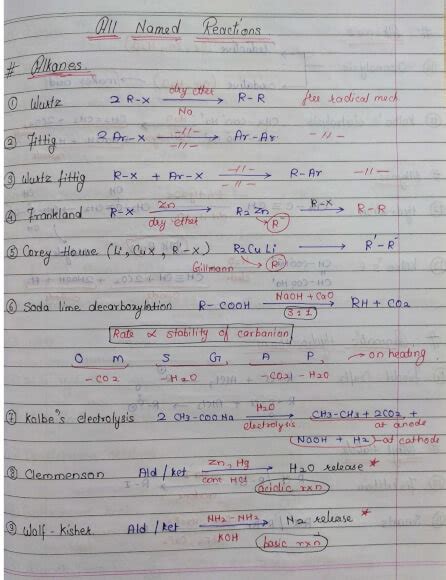 All Named Reactions
# Alkanes.
① Wurtz 2 R-X dry ether → Na R-R free radical mech.
② Fittig 2 Ar-X -11- → -11- Ar-Ar -11-
③ Wurtz fittig R-X + Ar-X -11- → -11- R-Ar -11-
④ Frankland R-X Zn → dry ether R2 Zn R-X → R-R
R⁻
⑤ Corey House (Li, CuX, R'-X) R2CuLi → R'-R
Gillmann R⁻
⑥ Soda lime decarboxylation R-COOH NaOH + CaO → 3:1 RH + CO2
Rate ∝ stability of carbanion
O M S G A P → on heating
-CO2 -H2O -CO2 -H2O
⑦ Kolbe's electrolysis 2 CH3-COONa H2O → electrolysis CH3-CH3 + 2CO2 + at anode
NaOH + H2 - at cathode
⑧ Clemmenson Ald / ket Zn, Hg → conc HCl H2O release *
acidic rxn
⑨ Wolf-Kisher Ald / ket NH2-NH2 → KOH N2 release *
basic rxn